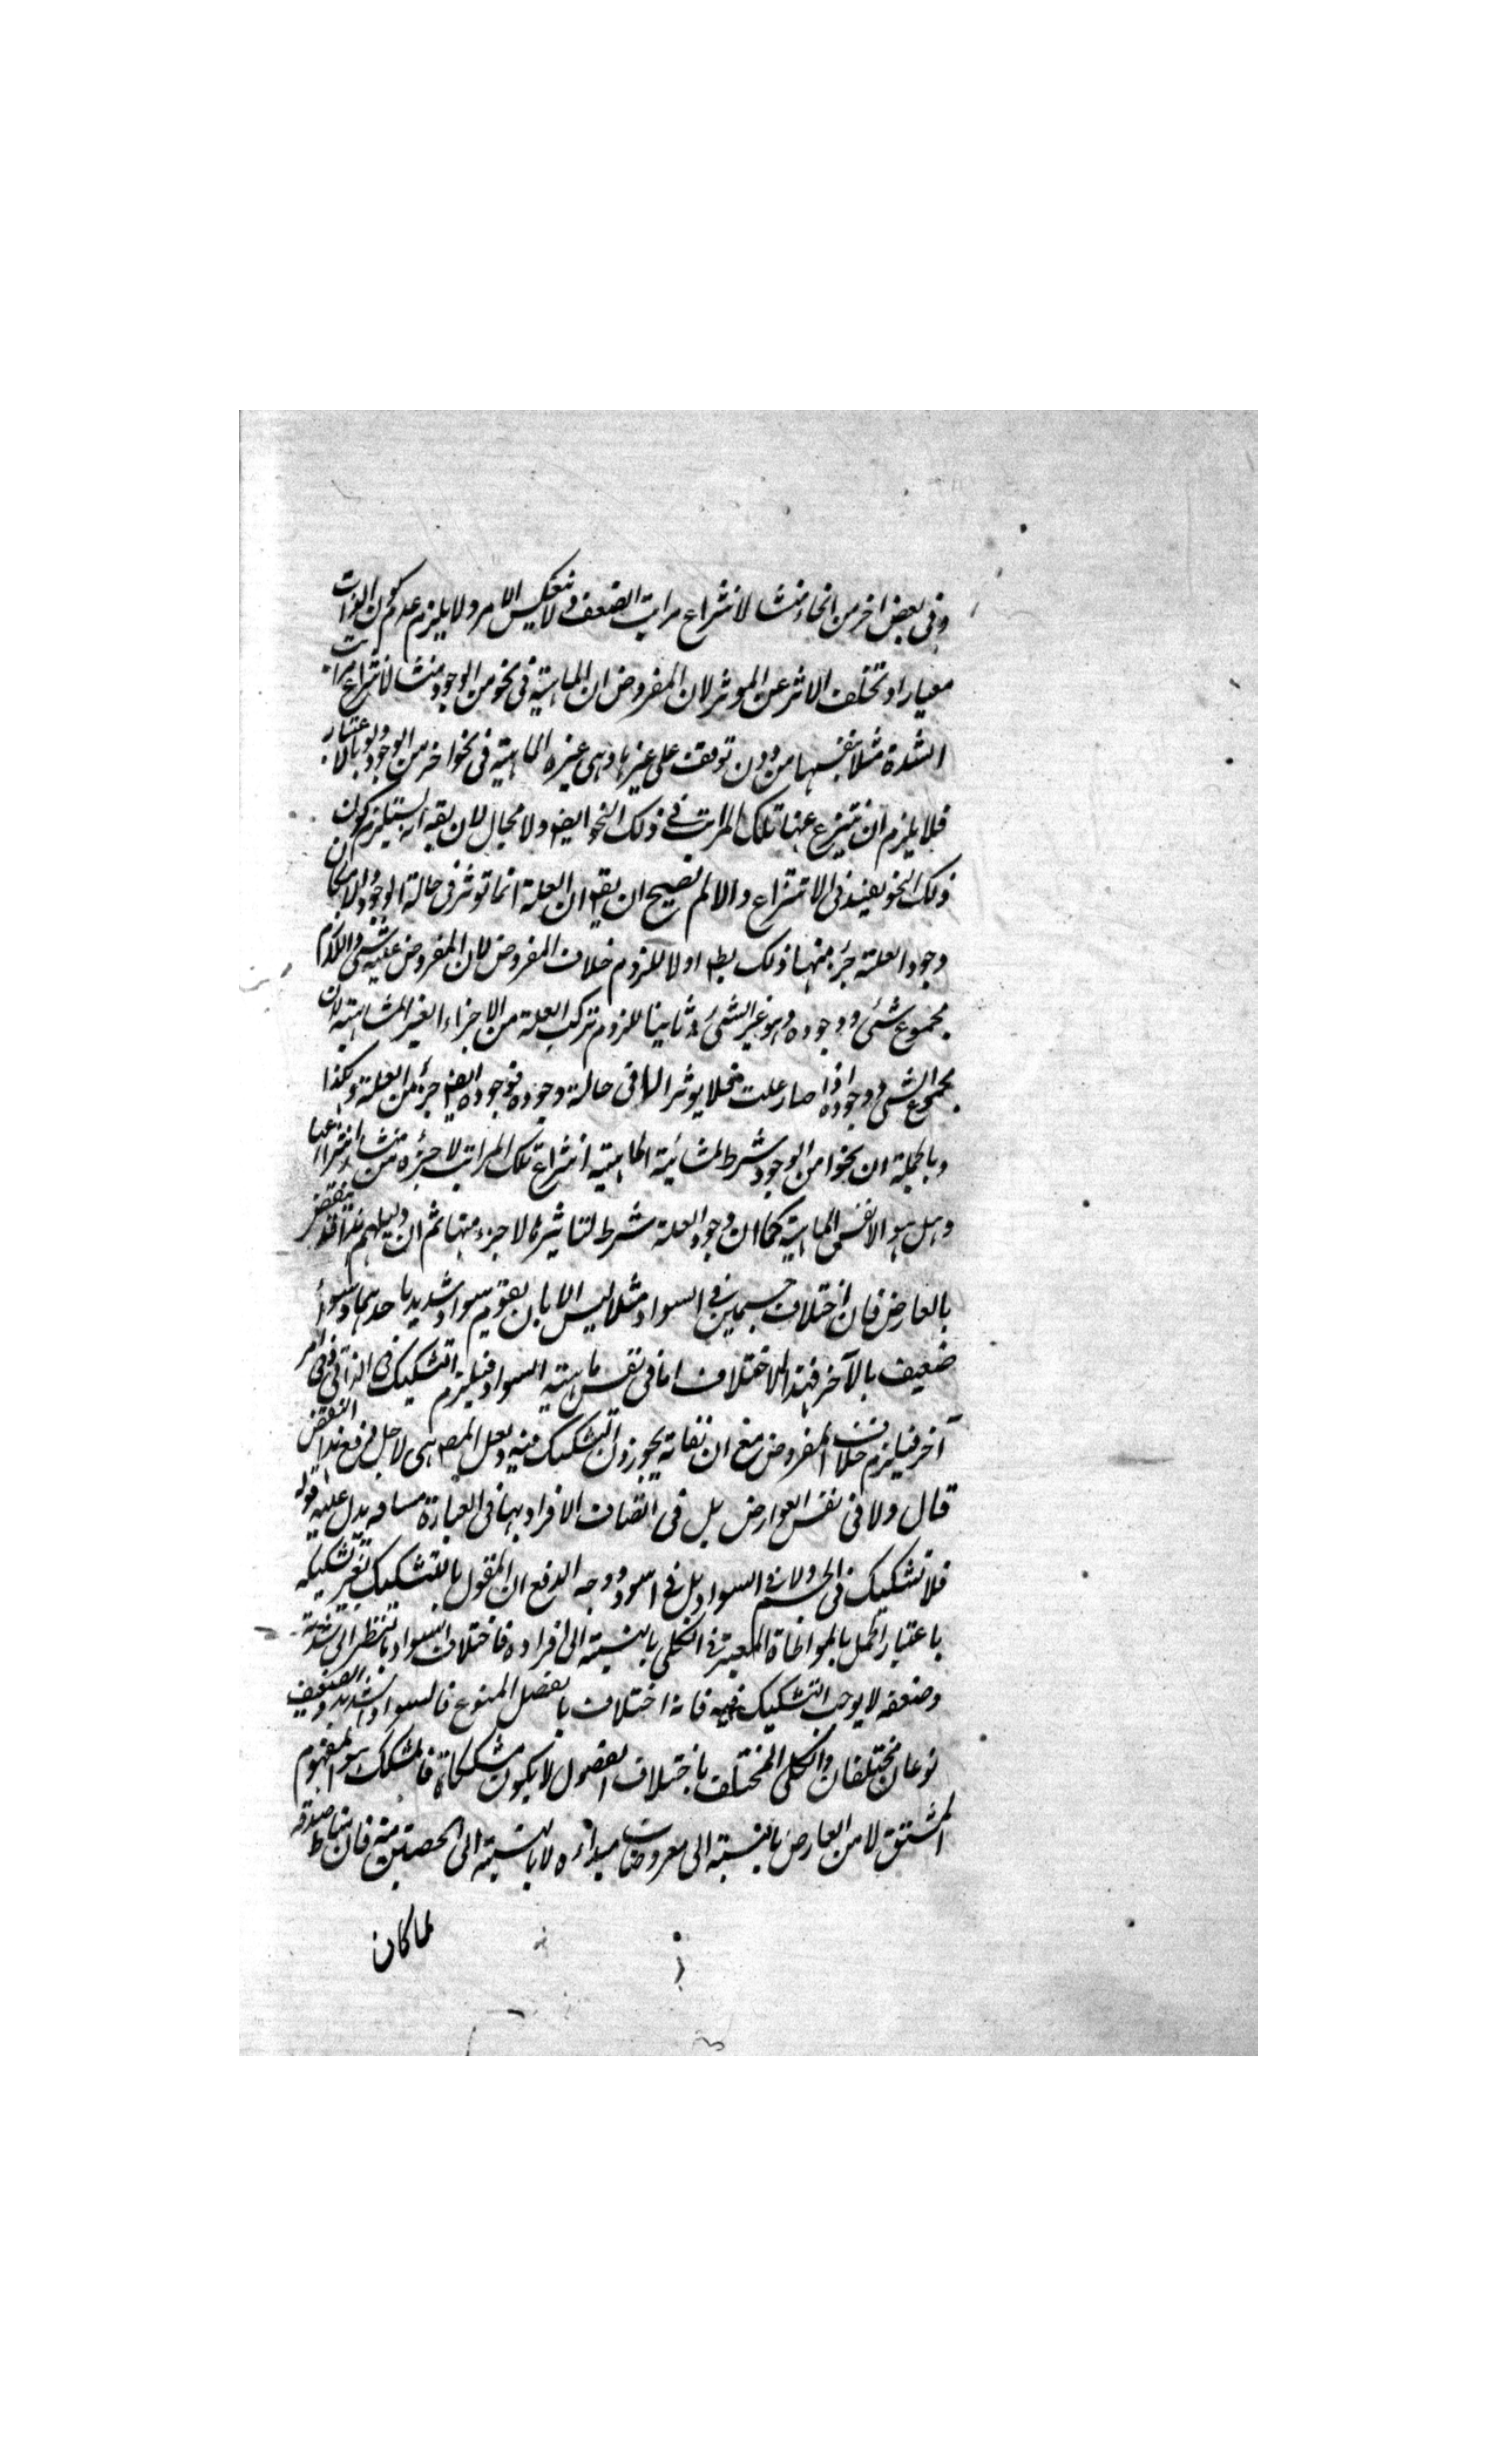 وفى بعض اخر من انحائه منشا لانتزاع مراتب الضعف ولا ينعكس الامر ولا يلزم عدم كون الذات
معيارا وتخلف الاثر عن الموثر لان المفروض ان الماهية فى نحو من الوجود منشا لانتزاع مراتب
الشدة مثلا بنفسها من دون توقف على غيرها وهى غيره الماهية فى نحو اخر من الوجود ولو بالاعتبار
فلا يلزم ان ينتزع عنها تلك المراتب فى ذلك النحو ايضه ولا مجال لان يقه انه يستلزم كون
ذلك النحو يفيد فى الانتزاع والا لم يصح ان يقه ان العلة انما توثر فى حالة الوجود والا لكان
وجود العلة جزء منها ذلك بطه اولا للزوم خلاف المفروض لان المفروض علية شئ واللازم
مجموع شئ ووجوده وهو غير الشئ وثانيا للزوم تركب العلة من الاجزاء الغير المتناهية لان
مجموع الشئ ووجوده اذا صار علت فلا يوثر الا فى حالة وجوده فوجوده ايضه جزء من العلة وهكذا
وبالجملة ان نحوا من الوجود شرط لمنشائية الماهية انتزاع تلك المراتب لا جزءه من منشا انتزاعها
وهل هو الا نفس الماهية كما ان وجود العلة شرط لتاثيرها لا جزء منها ثم ان دليلهم هذا منقوض
بالعارض فان اختلاف جسمين فى السواد مثلا ليس الا بان يقوم سواد شديد باحدهما وسواد
ضعيف بالآخر فهذا الاختلاف اما فى نفس ماهية السواد فيلزم التشكيك فى الذاتى او فى امر
آخر فيلزم خلاف المفروض مع ان نفاته يجوزون التشكيك فيه ولعل المصه هى لاجل دفع هذا النقض
قال ولا فى نفس العوارض بل فى اتصاف الافراد بها فى العبارة مسامحه يدل عليه قوله
فلا تشكيك فى الجسم ولا فى السواد بل فى اسود ووجه الدفع ان المقول بالتشكيك يعتبر تشكيكه
باعتبار الحمل بالمواطاة المعتبرة فى الكلى بالنسبة الى افراده فاختلاف السواد بالنظر الى شدته
وضعفه لا يوجب التشكيك فيه فانه اختلاف بالفصل المنوع فالسواد الشديد والضعيف
نوعان مختلفان والكلى المختلف باختلاف الفصول لا يكون مشككا فالمشكك هو المفهوم
المشتق لا من العارض بالنسبة الى معروضات مبدائه لا بالنسبة الى الحصتين منه فان مناط صدقه
لما كان